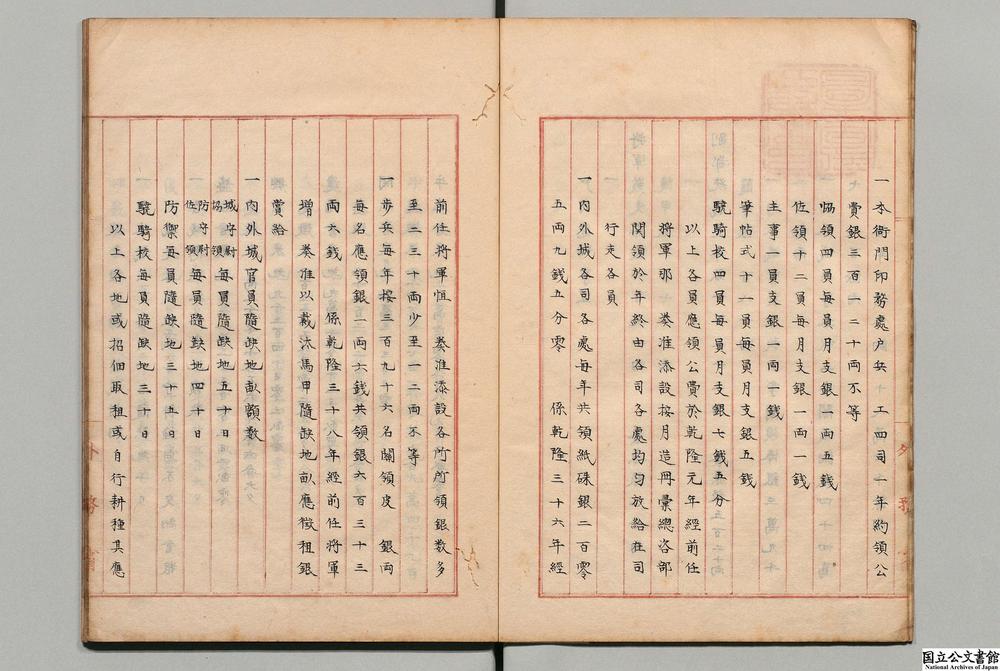 一本衙門印務處户兵　工四司一年約領公
費銀三百一二十兩不等
協領四員每員月支銀一兩五錢
佐領十二員每月支銀一兩一錢
主事一員支銀一兩一錢
筆帖式十一員每員月支銀五錢
驍騎校四員每員月支銀七錢五分
以上各員應領公費於乾隆元年經前任
將軍那　奏准添設按月造冊彙總咨部
関領於年終由各司各處均勻放給在司
行走各員
一内外城各司各處每年共領紙硃銀二百零
五兩九錢五分零　係乾隆三十六年經
前任將軍恒　奏准添設各所所領銀数多
至二三十兩少至一二兩不等
一步兵每年按三百九十六名関領皮　銀兩
每名應領銀一兩六錢共領銀六百三十三
兩六錢　係乾隆三十八年經前任將軍
增　奏准以裁汰馬甲隨缺地畝應徵租銀
賞給
一内外城官員隨缺地畝額数
城守尉
協領　每員隨缺地五十日
一防守尉
佐領　每員隨缺地四十日
防禦每員隨缺地三十五日
一驍騎校每員隨缺地三十日
以上各地或招佃取租或自行耕種其應
外務省
国立公文書館
National Archives of Japan